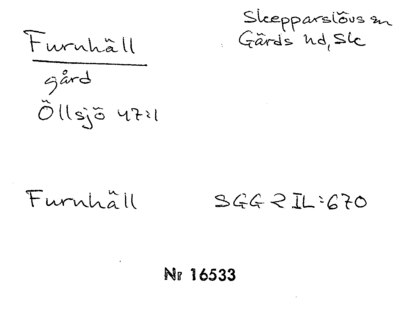 Furnhäll
Skepparslövs sn
Gärds hd, Sk
gård
Öllsjö 47:1
Furnhäll SGG 2 IL:670
Nr 16533